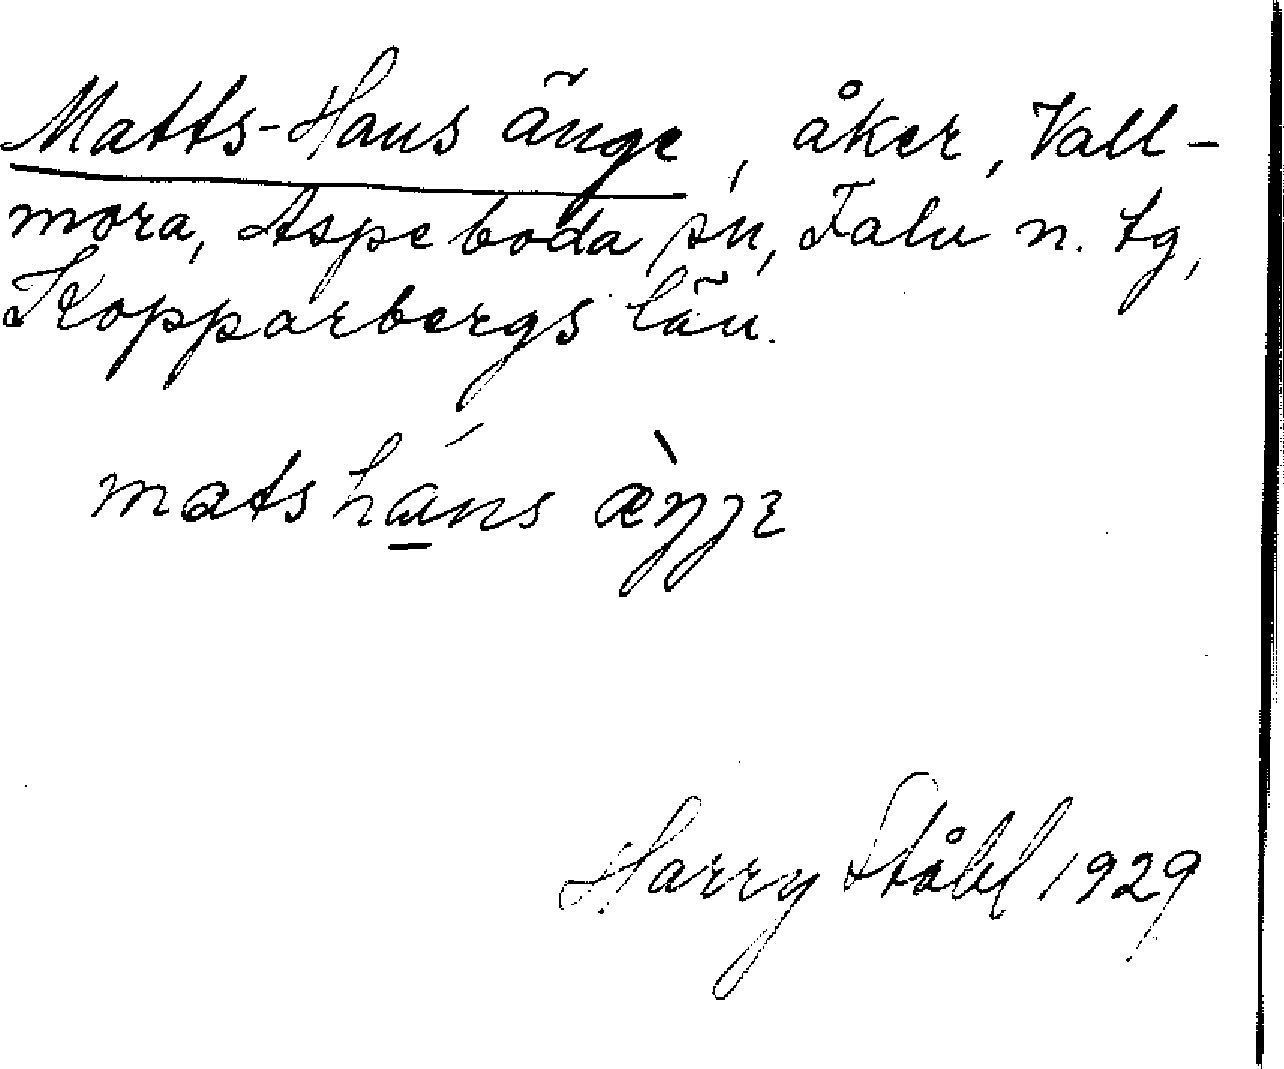 Matts-Hans änge, åker, Vall-
mora, Aspeboda sn, Falu n. tg,
Kopparbergs län.
mats háns æ̀ŋɟɛ
Harry Ståhl 1929